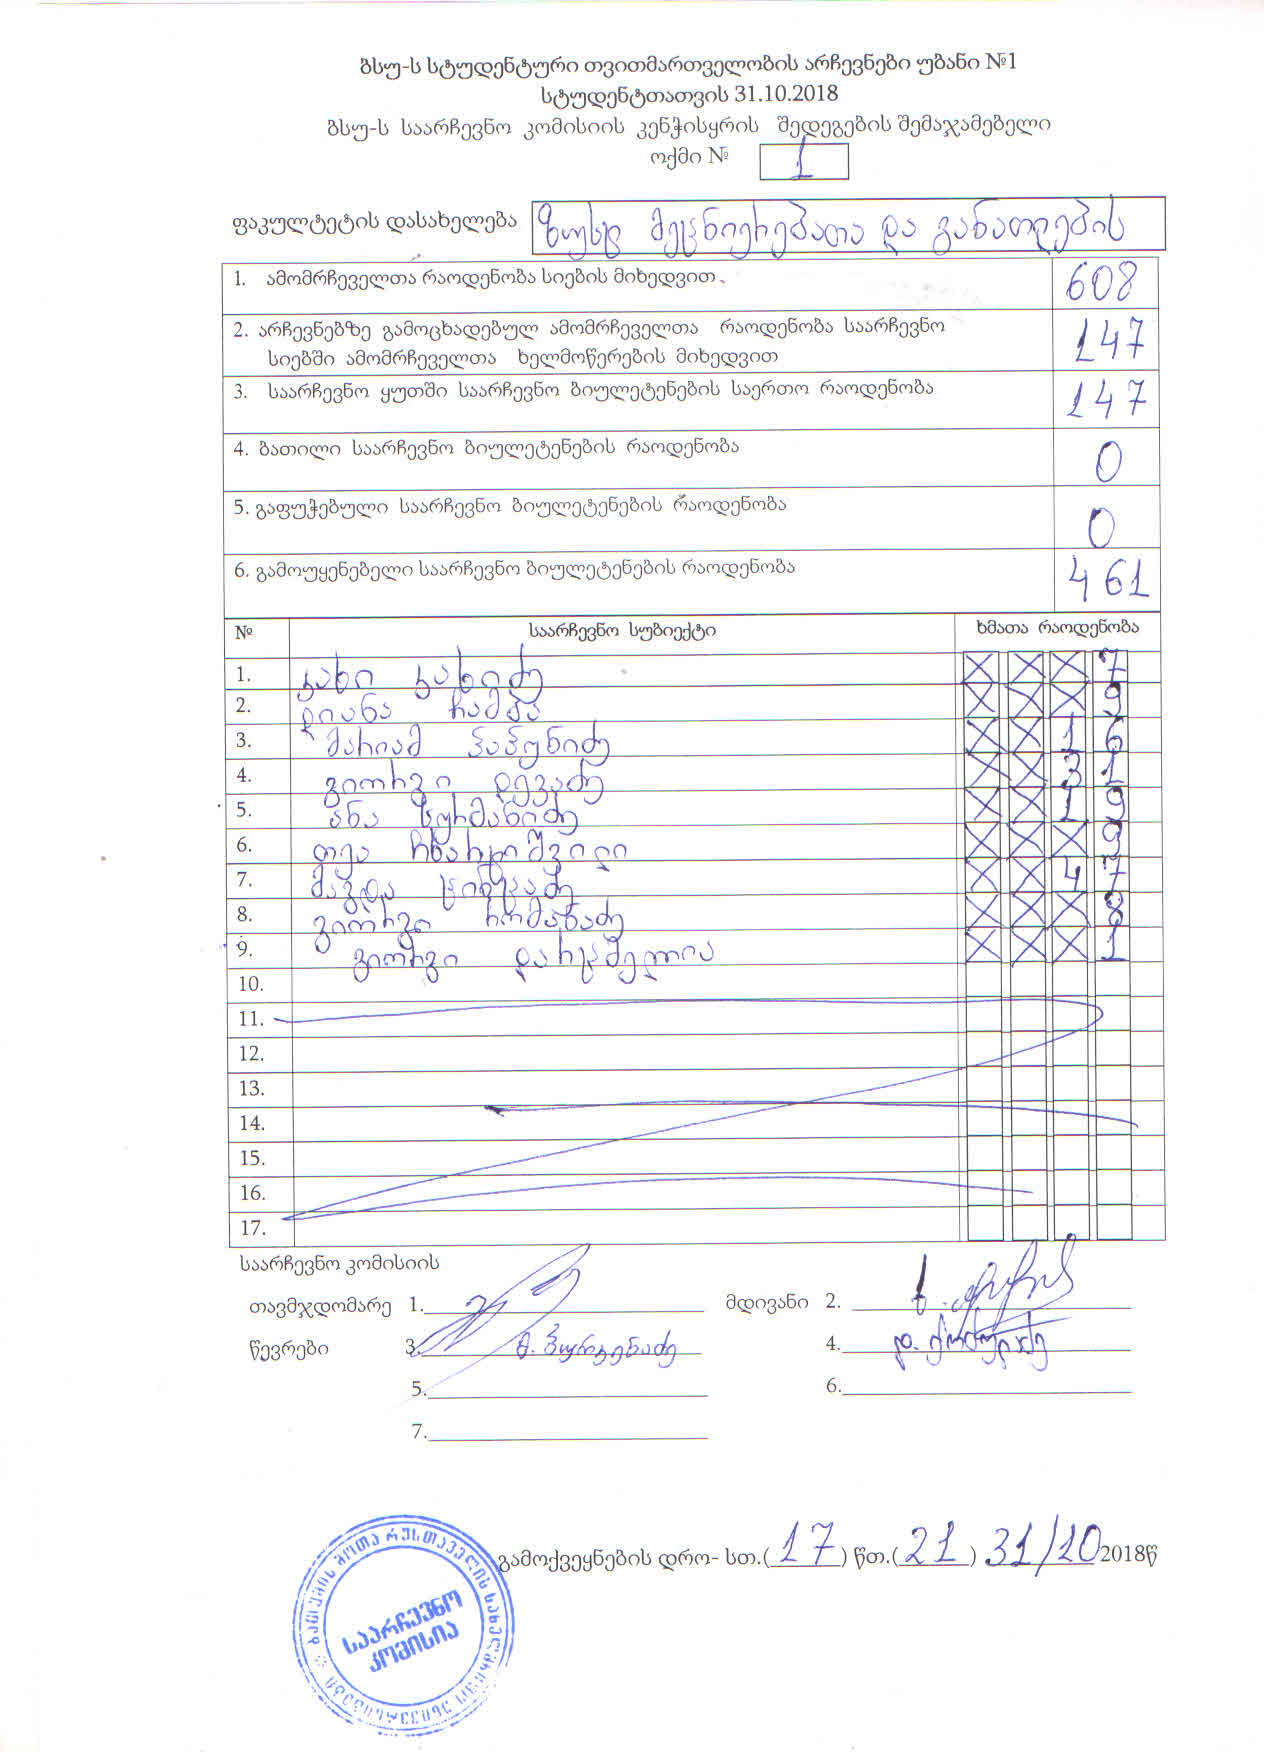 ბსუ-ს სტუდენტური თვითმართველობის არჩევნები უბანი №1
სტუდენტთათვის 31.10.2018
ბსუ-ს საარჩევნო კომისიის კენჭისყრის შედეგების შემაჯამებელი
ოქმი № 1
ფაკულტეტის დასახელება ზუსტ მეცნიერებათა და განათლების
1. ამომრჩეველთა რაოდენობა სიების მიხედვით. 608
2. არჩევნებზე გამოცხადებულ ამომრჩეველთა რაოდენობა საარჩევნო
სიებში ამომრჩეველთა ხელმოწერების მიხედვით 147
3. საარჩევნო ყუთში საარჩევნო ბიულეტენების საერთო რაოდენობა 147
4. ბათილი საარჩევნო ბიულეტენების რაოდენობა 0
5. გაფუჭებული საარჩევნო ბიულეტენების რაოდენობა 0
6. გამოუყენებელი საარჩევნო ბიულეტენების რაოდენობა 461
№ საარჩევნო სუბიექტი ხმათა რაოდენობა
1. კახი კახიძე X X X 7
2. დიანა X X X 9
3. მარიამ პაპუნიძე X X 1 6
4. გიორგი დევაძე X X 3 1
5. ანა სურმანიძე X X 1 9
6. თეა ჩხარტიშვილი X X X 9
7. მაგდა X X 4 7
8. გიორგი რომანაძე X X X 8
9. გიორგი დარჯამელია X X X 1
10.
11.
12.
13.
14.
15.
16.
17.
საარჩევნო კომისიის
თავმჯდომარე 1. მდივანი 2.
წევრები 3. 4.
5. 6.
7.
გამოქვეყნების დრო- სთ.(17) წთ.(21) 31/10 2018წ
ბათუმის შოთა რუსთაველის სახელმწიფო უნივერსიტეტი
საარჩევნო
კომისია